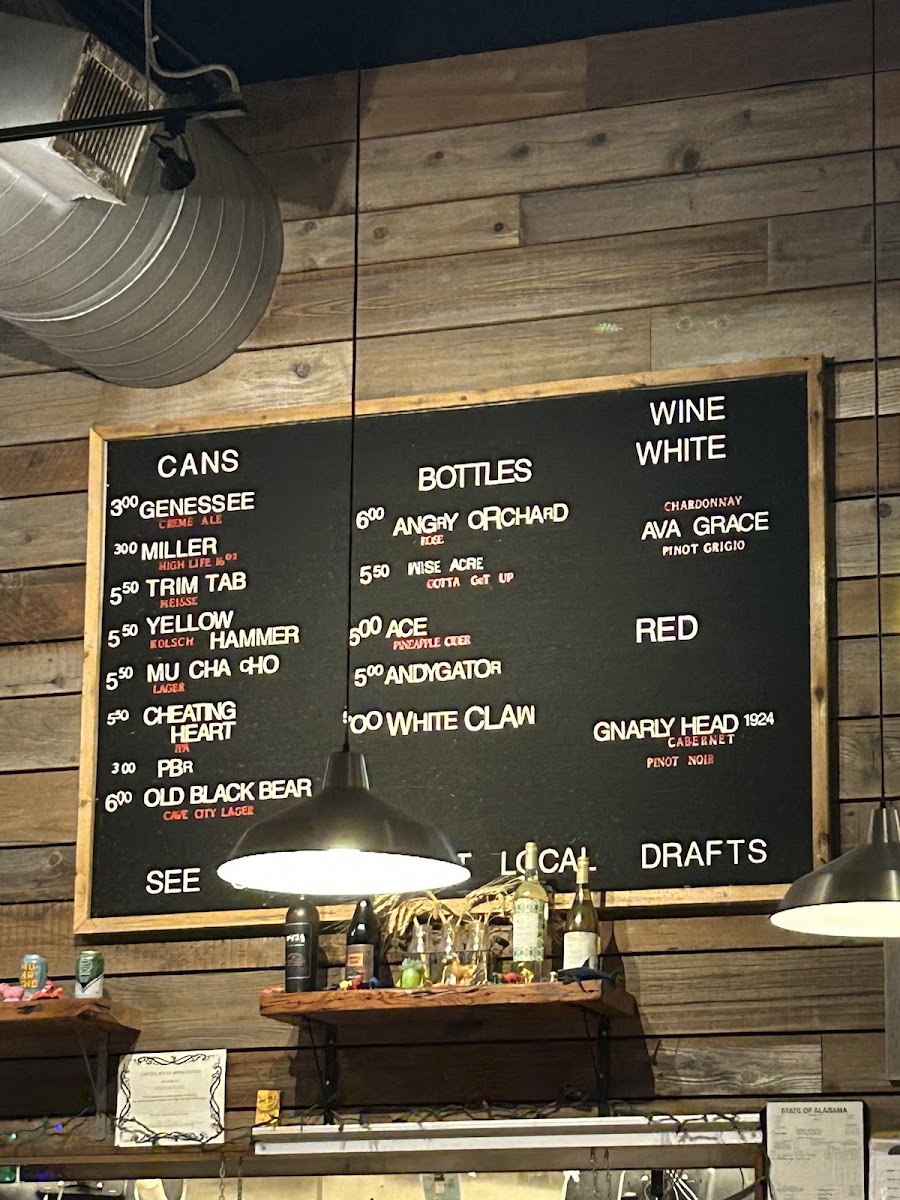 CANS
3⁰⁰ GENESSEE
CREME ALE
3⁰⁰ MILLER
HIGH LIFE 16 OZ
5⁵⁰ TRIM TAB
5⁵⁰ YELLOW
KOLSCH HAMMER
5⁵⁰ MU CHA CHO
LAGER
5⁵⁰ CHEATING
HEART
IPA
3⁰⁰ PBR
6⁰⁰ OLD BLACK BEAR
CAVE CITY LAGER
SEE
BOTTLES
6⁰⁰ ANGRY ORCHARD
ROSE
5⁵⁰ WISE ACRE
GOTTA GET UP
5⁰⁰ ACE
PINEAPPLE CIDER
5⁰⁰ ANDYGATOR
WHITE CLAW
LOCAL DRAFTS
WINE
WHITE
CHARDONNAY
AVA GRACE
PINOT GRIGIO
RED
GNARLY HEAD 1924
CABERNET
PINOT NOIR
STATE OF ALABAMA